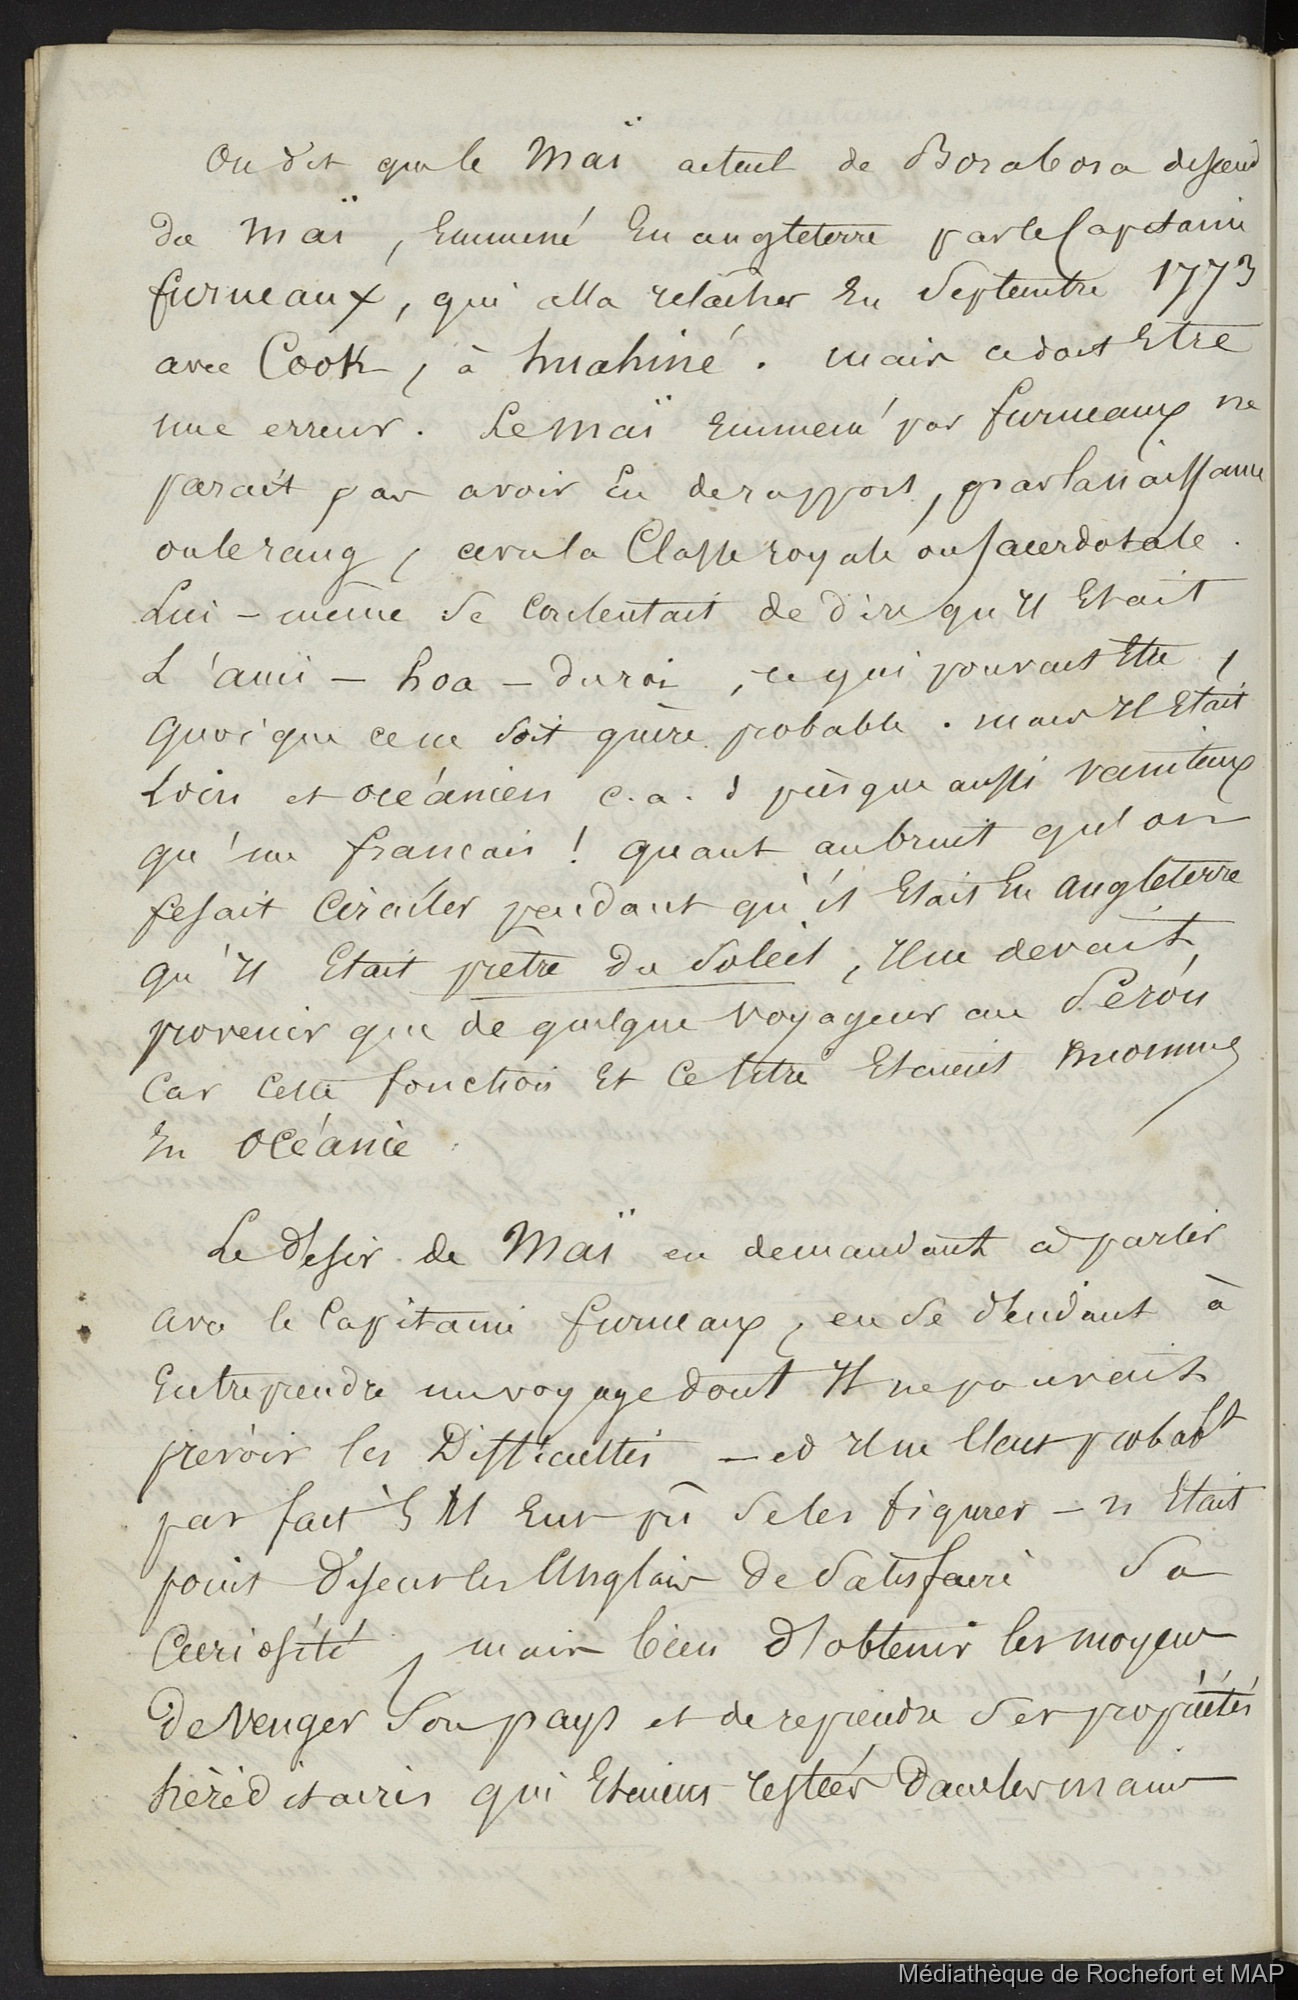 On dit que le Maï actuel de Borabora descend
du Maï, emmené en angleterre par le Capitaine
furneaux, qui alla relâcher en Septembre 1773
avec Cook, à huahiné. mais ce doit Etre
une erreur. Le maï emmené par furneaux ne
parait pas avoir eu de rapport, par la naissance
ou le rang, avec la Classe royale ou sacerdotale.
Lui-même se contentait de dire qu'il Etait
L'ami - hoa - du roi, ce qui pouvait etre,
quoique ce ne soit guère probable. mais il Etait
et océanien c.a.d presque aussi vaniteux
qu'un français! quant au bruit qu'on
fesait circuler pendant qu'il Etait en angleterre
qu'il Etait prêtre du Soleil, il ne devait
provenir que de quelque voyageur au Pérou
Car cette fonction et ce titre Etaient inconnus
En Océanie.
Le désir de Maï en demandant à partir
avec le Capitaine furneaux, en se décidant à
Entreprendre un voyage dont il ne pouvait
prévoir les Difficultés - et il ne l'eut probablt
pas fait s'il eut pû se les figurer - n'Etait
point disent les Anglais de Satisfaire sa
Curiosité, mais bien d'obtenir les moyens
de venger son pays et de reprendre ses propriétés
héréditaires qui Etaient restées dans les mains
Médiathèque de Rochefort et MAP